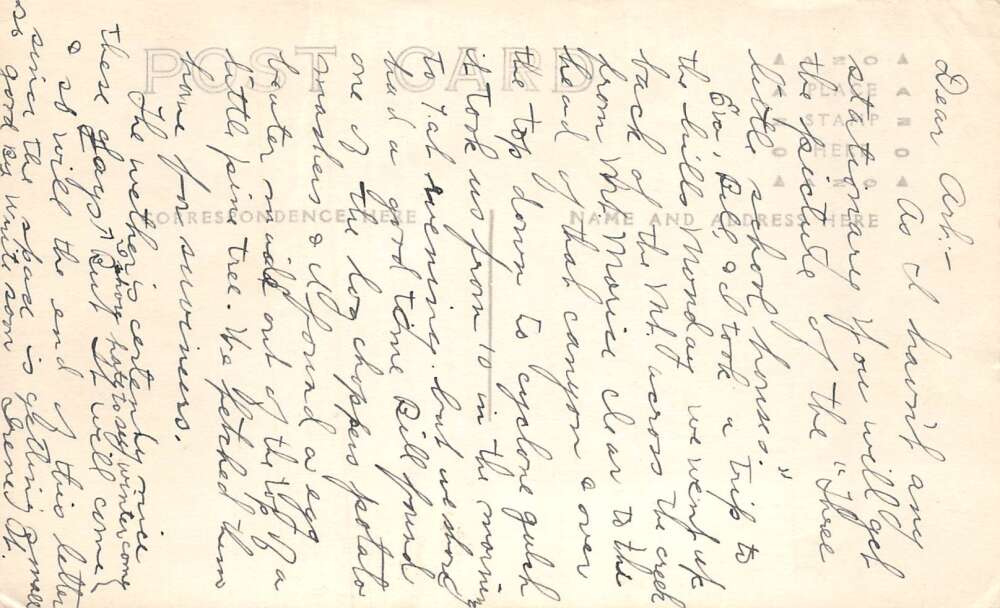 POST CARD
CORRESPONDENCE HERE
NAME AND ADDRESS HERE
PLACE
STAMP
HERE
Dear Art:-
As I havn't any
stationary you will get
the picture of the "Three
little school houses."
Eva, Bill & I took a trip to
the hills Monday we went up
back of the Mt. across the creek
from Mt. Morice clear to the
head of that canyon & over
the top down to cyclone gulch
it took us from 10 in the morning
to 7 at evening. but we shore
had a good time Bill found
one of the log choppers potato
mashers & I found a egg
beater made out of the top of a
little pine tree. We fetched them
home for suviners.
The wether is certenly nice
these days, But I shore hate to see winter come
But it will come
& so will the end of this letter
since the space is getting small
so good by write soon Irene